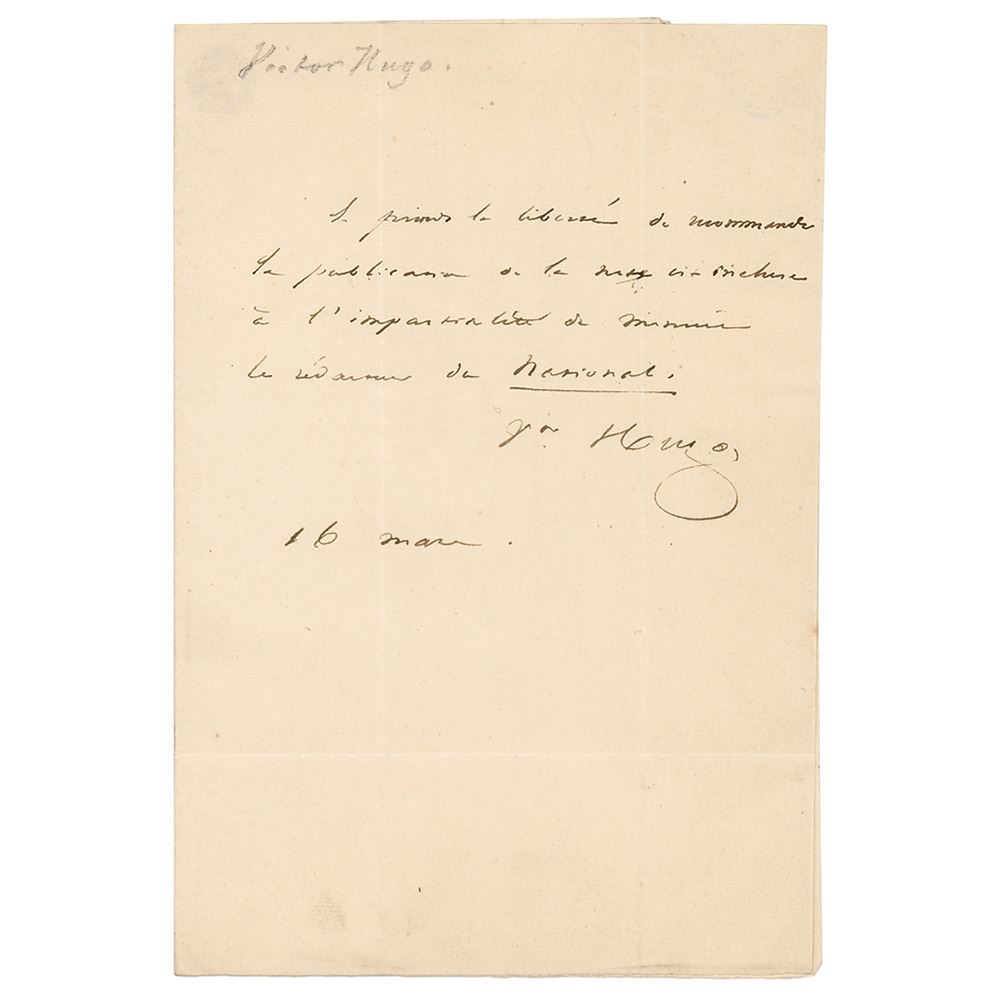 Victor Hugo.
Je prends la liberté de recommander
la publication de la note ci-incluse
à l'impartialité de monsieur
le rédacteur du National.
Vor Hugo
16 mars.